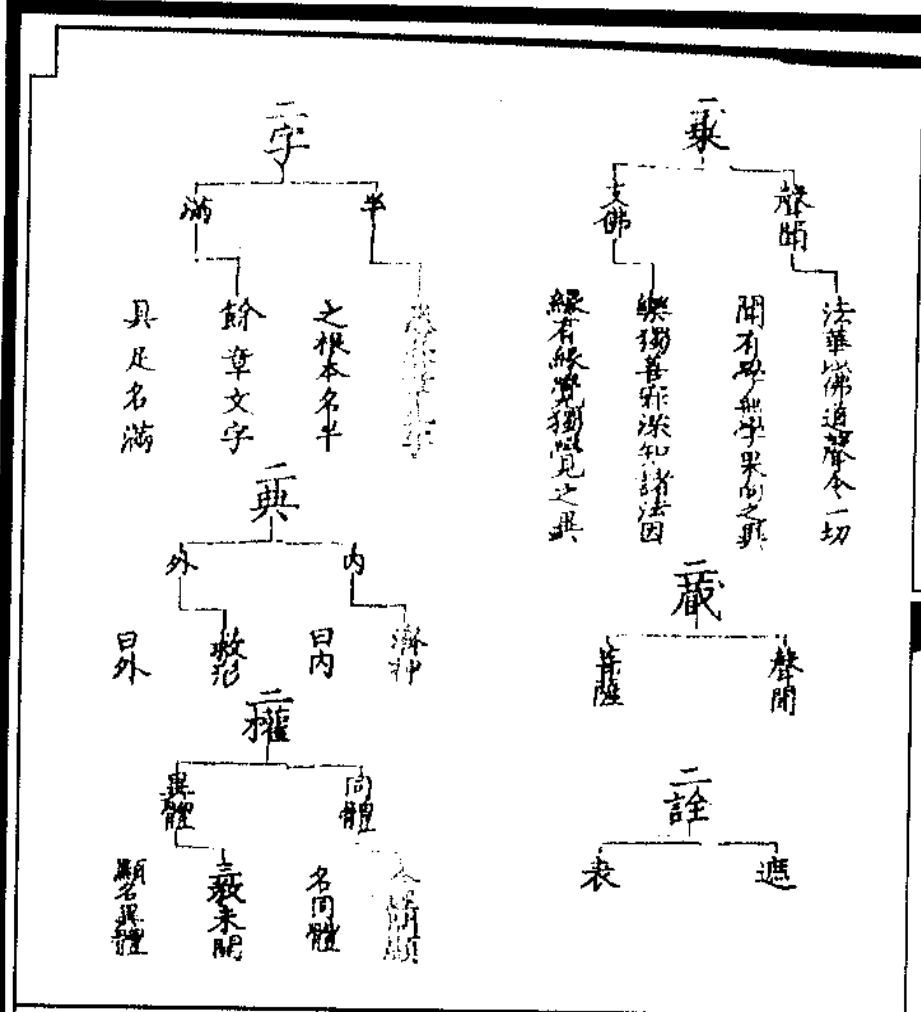 二乘
聲聞
法華以佛道聲令一切
聞有學無學果向之異
支佛
樂獨善寂深知諸法因
緣有緣覺獨覺之異
二藏
聲聞
菩薩
二詮
遮
表
二字
半
之根本名半
滿
餘章文字
具足名滿
二典
內
濟神
曰內
外
救形
曰外
二權
同體
開顯
名同體
異體
三教未開
顯名異體